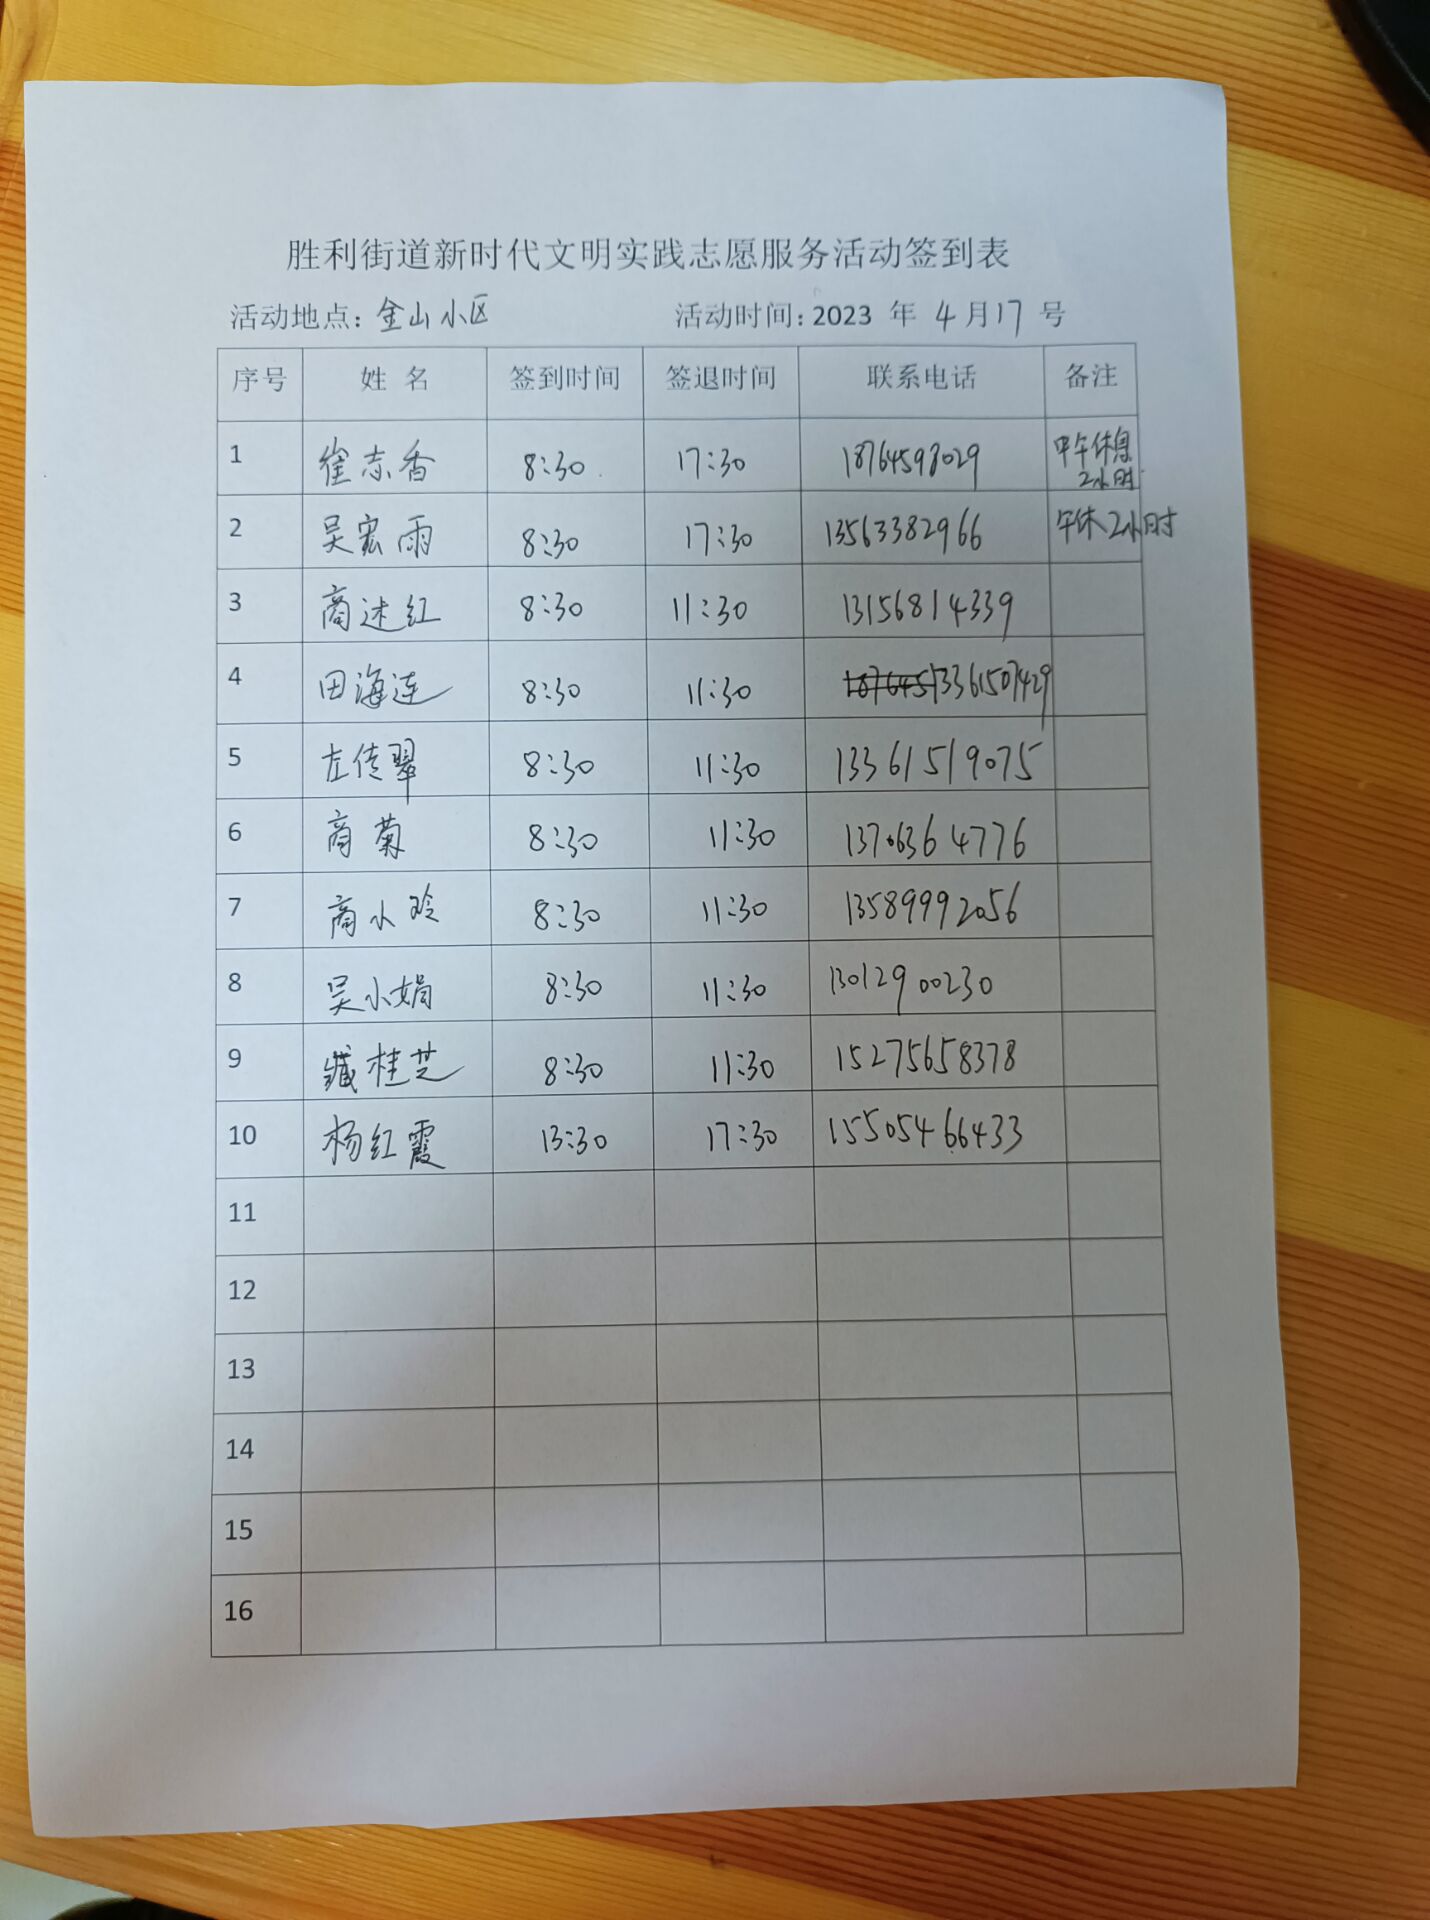 胜利街道新时代文明实践志愿服务活动签到表
活动地点: 金山小区 活动时间: 2023 年 4 月 17 号
序号 姓 名 签到时间 签退时间 联系电话 备注
1 崔志香 8:30 17:30 18764598029 中午休息
2小时
2 吴宏雨 8:30 17:30 13563382966 午休2小时
3 商述红 8:30 11:30 13156814339
4 田海连 8:30 11:30 13361507429
5 左传翠 8:30 11:30 13361519075
6 商菊 8:30 11:30 13706364776
7 商小玲 8:30 11:30 13589992056
8 吴小娟 8:30 11:30 13012900230
9 臧桂芝 8:30 11:30 15275658378
10 杨红霞 13:30 17:30 15505466433
11
12
13
14
15
16